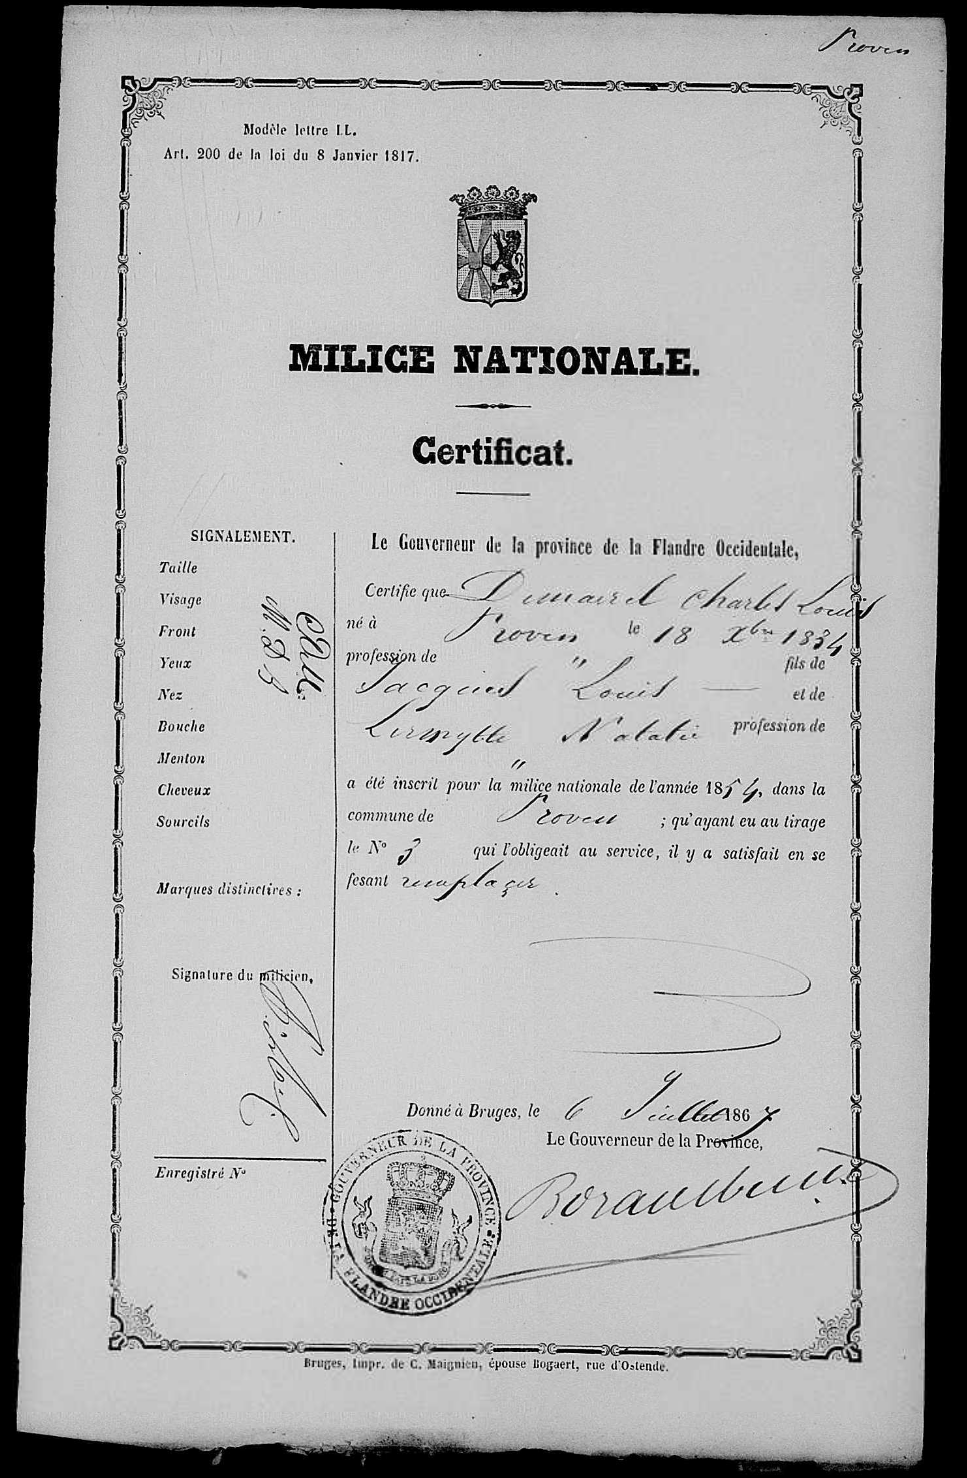 Proven
Modèle lettre LL.
Art. 200 de la loi du 8 Janvier 1817.
MILICE NATIONALE.
Certificat.
SIGNALEMENT.
Taille
Visage
Front
Yeux
Nez
Bouche
Menton
Cheveux
Sourcils
Marques distinctives :
Signature du milicien,
Enregistré Nº
Le Gouverneur de la province de la Flandre Occidentale,
Certifie que Charles Louis
né à Proven le 18 Xbre 1834
profession de " fils de
Jacques Louis — et de
Natalie profession de
"
a été inscrit pour la milice nationale de l'année 1854, dans la
commune de Proven ; qu'ayant eu au tirage
le Nº 3 qui l'obligeait au service, il y a satisfait en se
fesant remplacer.
Donné à Bruges, le 6 Juillet 1867
Le Gouverneur de la Province,
GOUVERNEUR DE LA PROVINCE DE LA FLANDRE OCCIDENTALE
Bruges, Impr. de C. Maignieu, épouse Bogaert, rue d'Ostende.